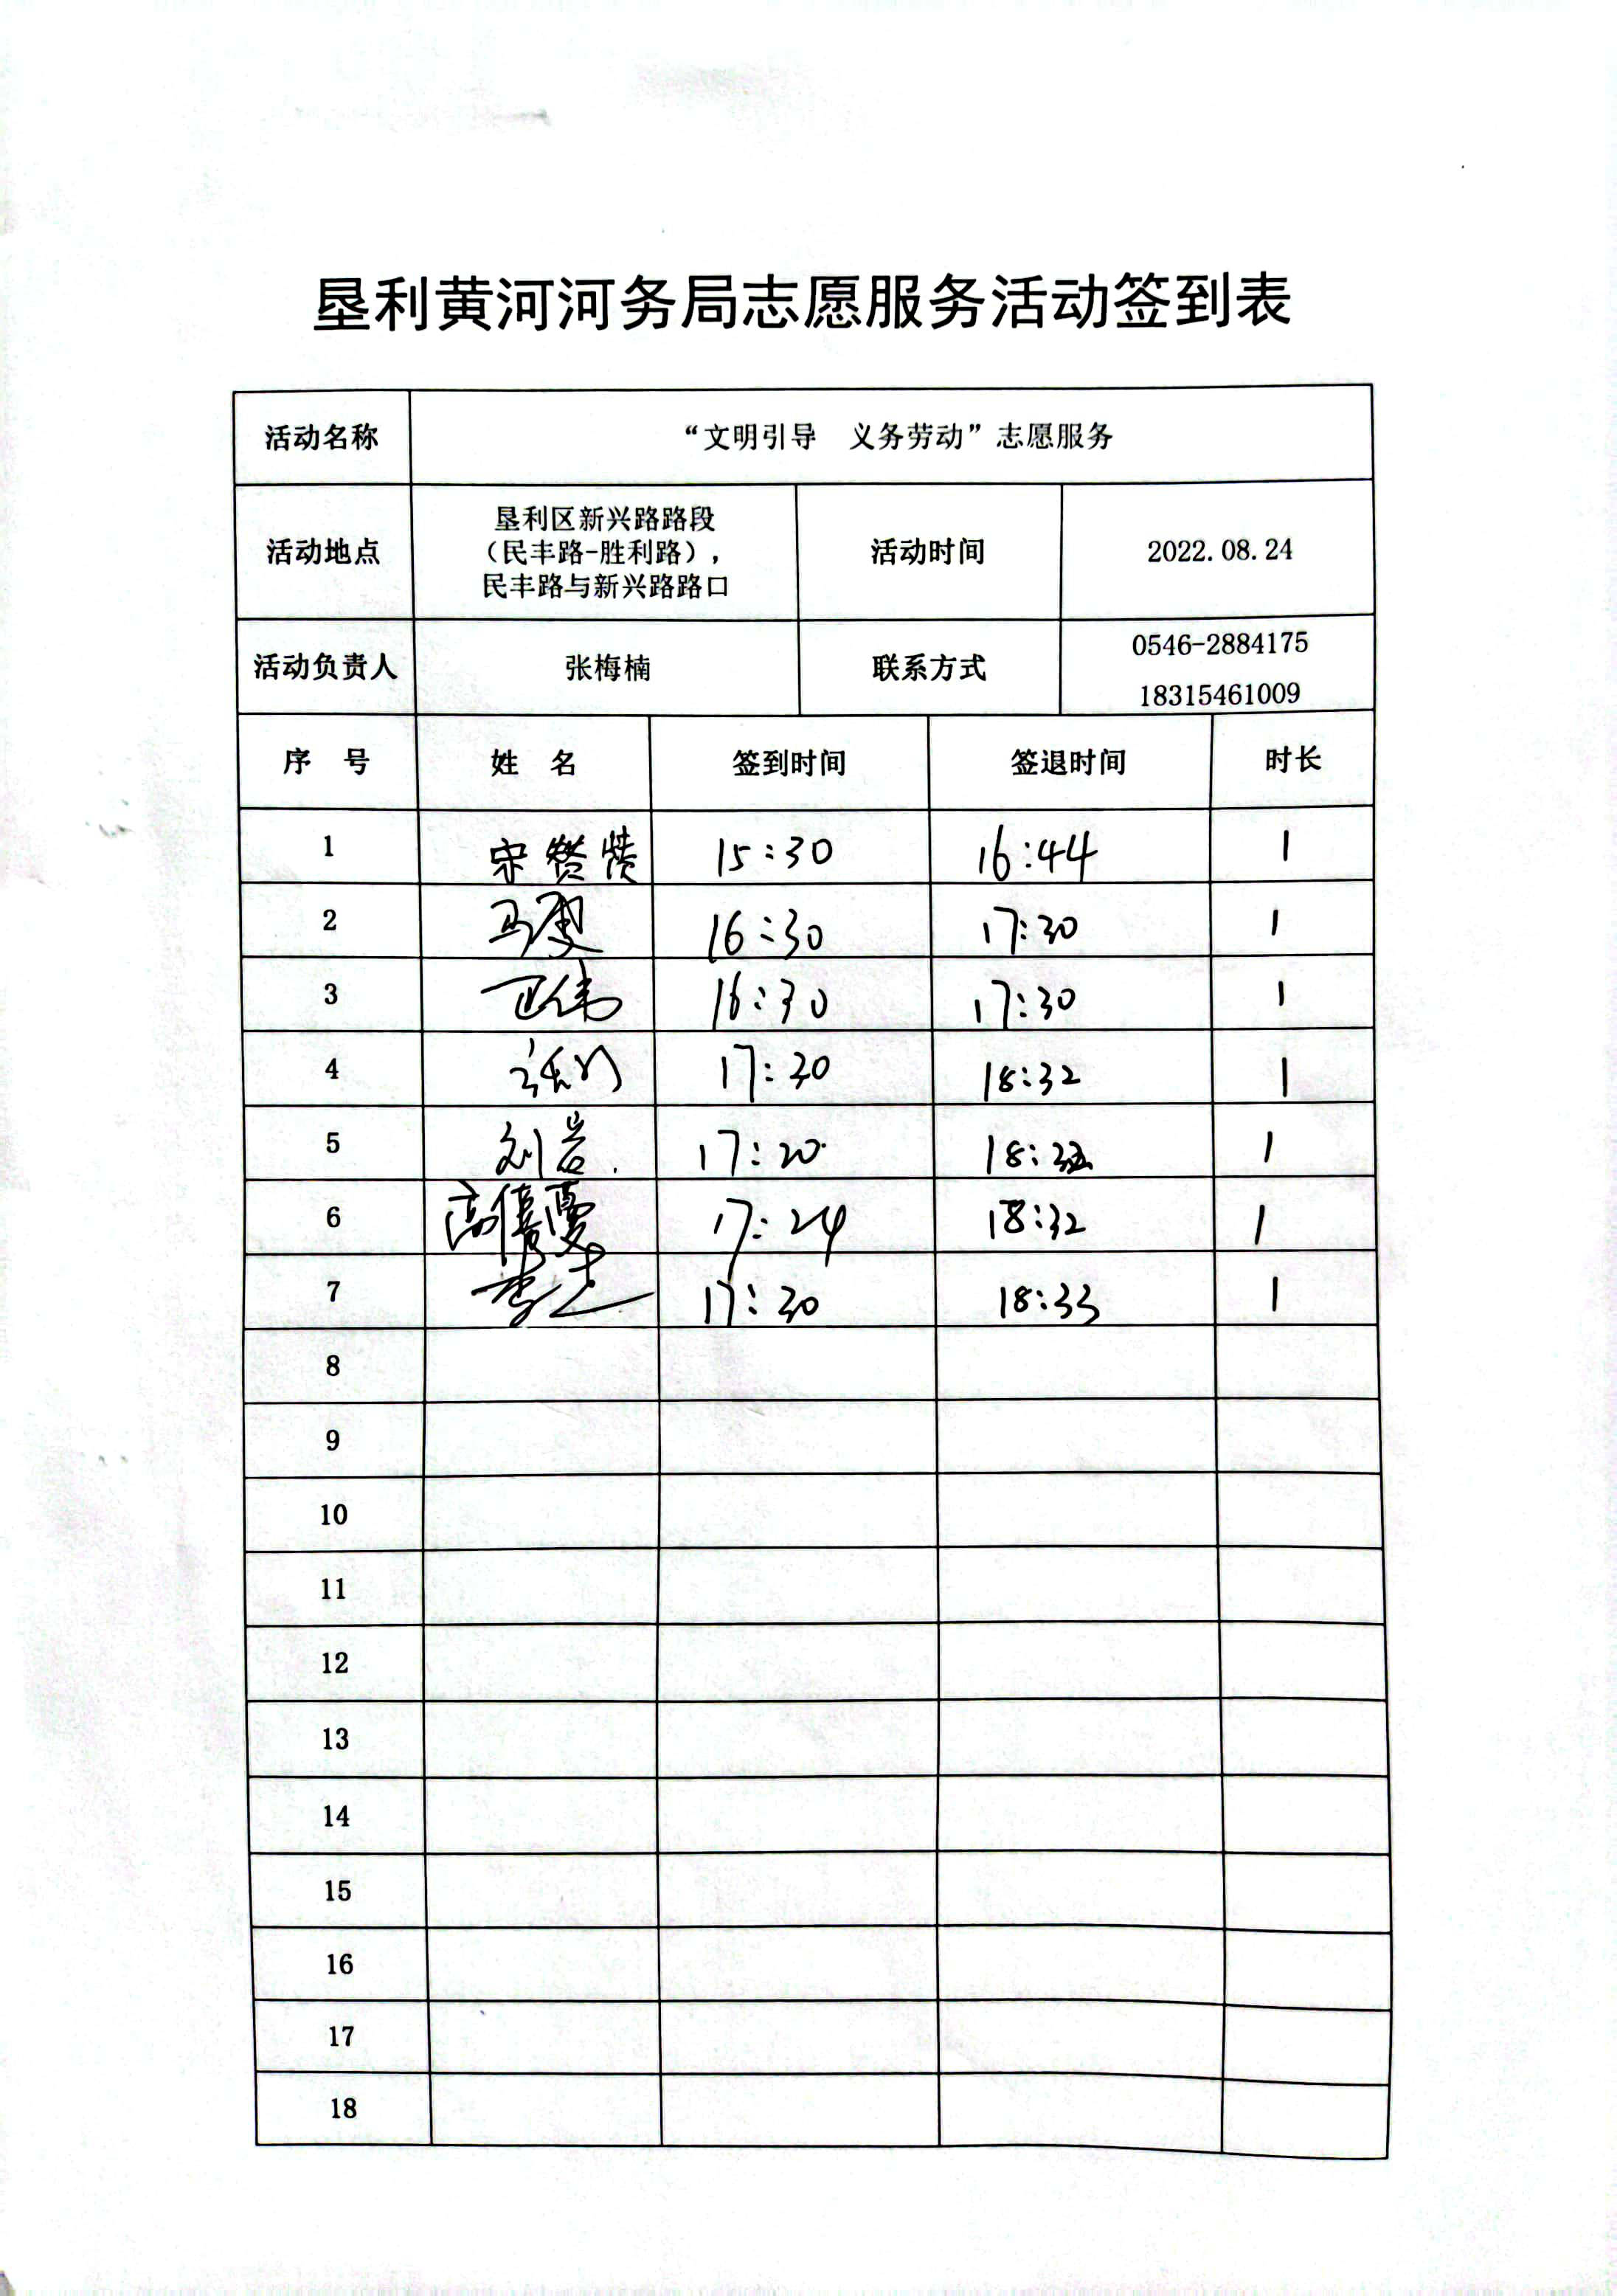 垦利黄河河务局志愿服务活动签到表
活动名称 “文明引导 义务劳动”志愿服务
活动地点 垦利区新兴路路段
（民丰路-胜利路），
民丰路与新兴路路口 活动时间 2022.08.24
活动负责人 张梅楠 联系方式 0546-2884175
18315461009
序 号 姓 名 签到时间 签退时间 时长
1 宋赞 15:30 16:44 1
2 马 16:30 17:30 1
3 伟 16:30 17:30 1
4 17:30 18:32 1
5 刘岩 17:20 1
6 高 17:24 18:32 1
7 李 17:30 18:33 1
8
9
10
11
12
13
14
15
16
17
18